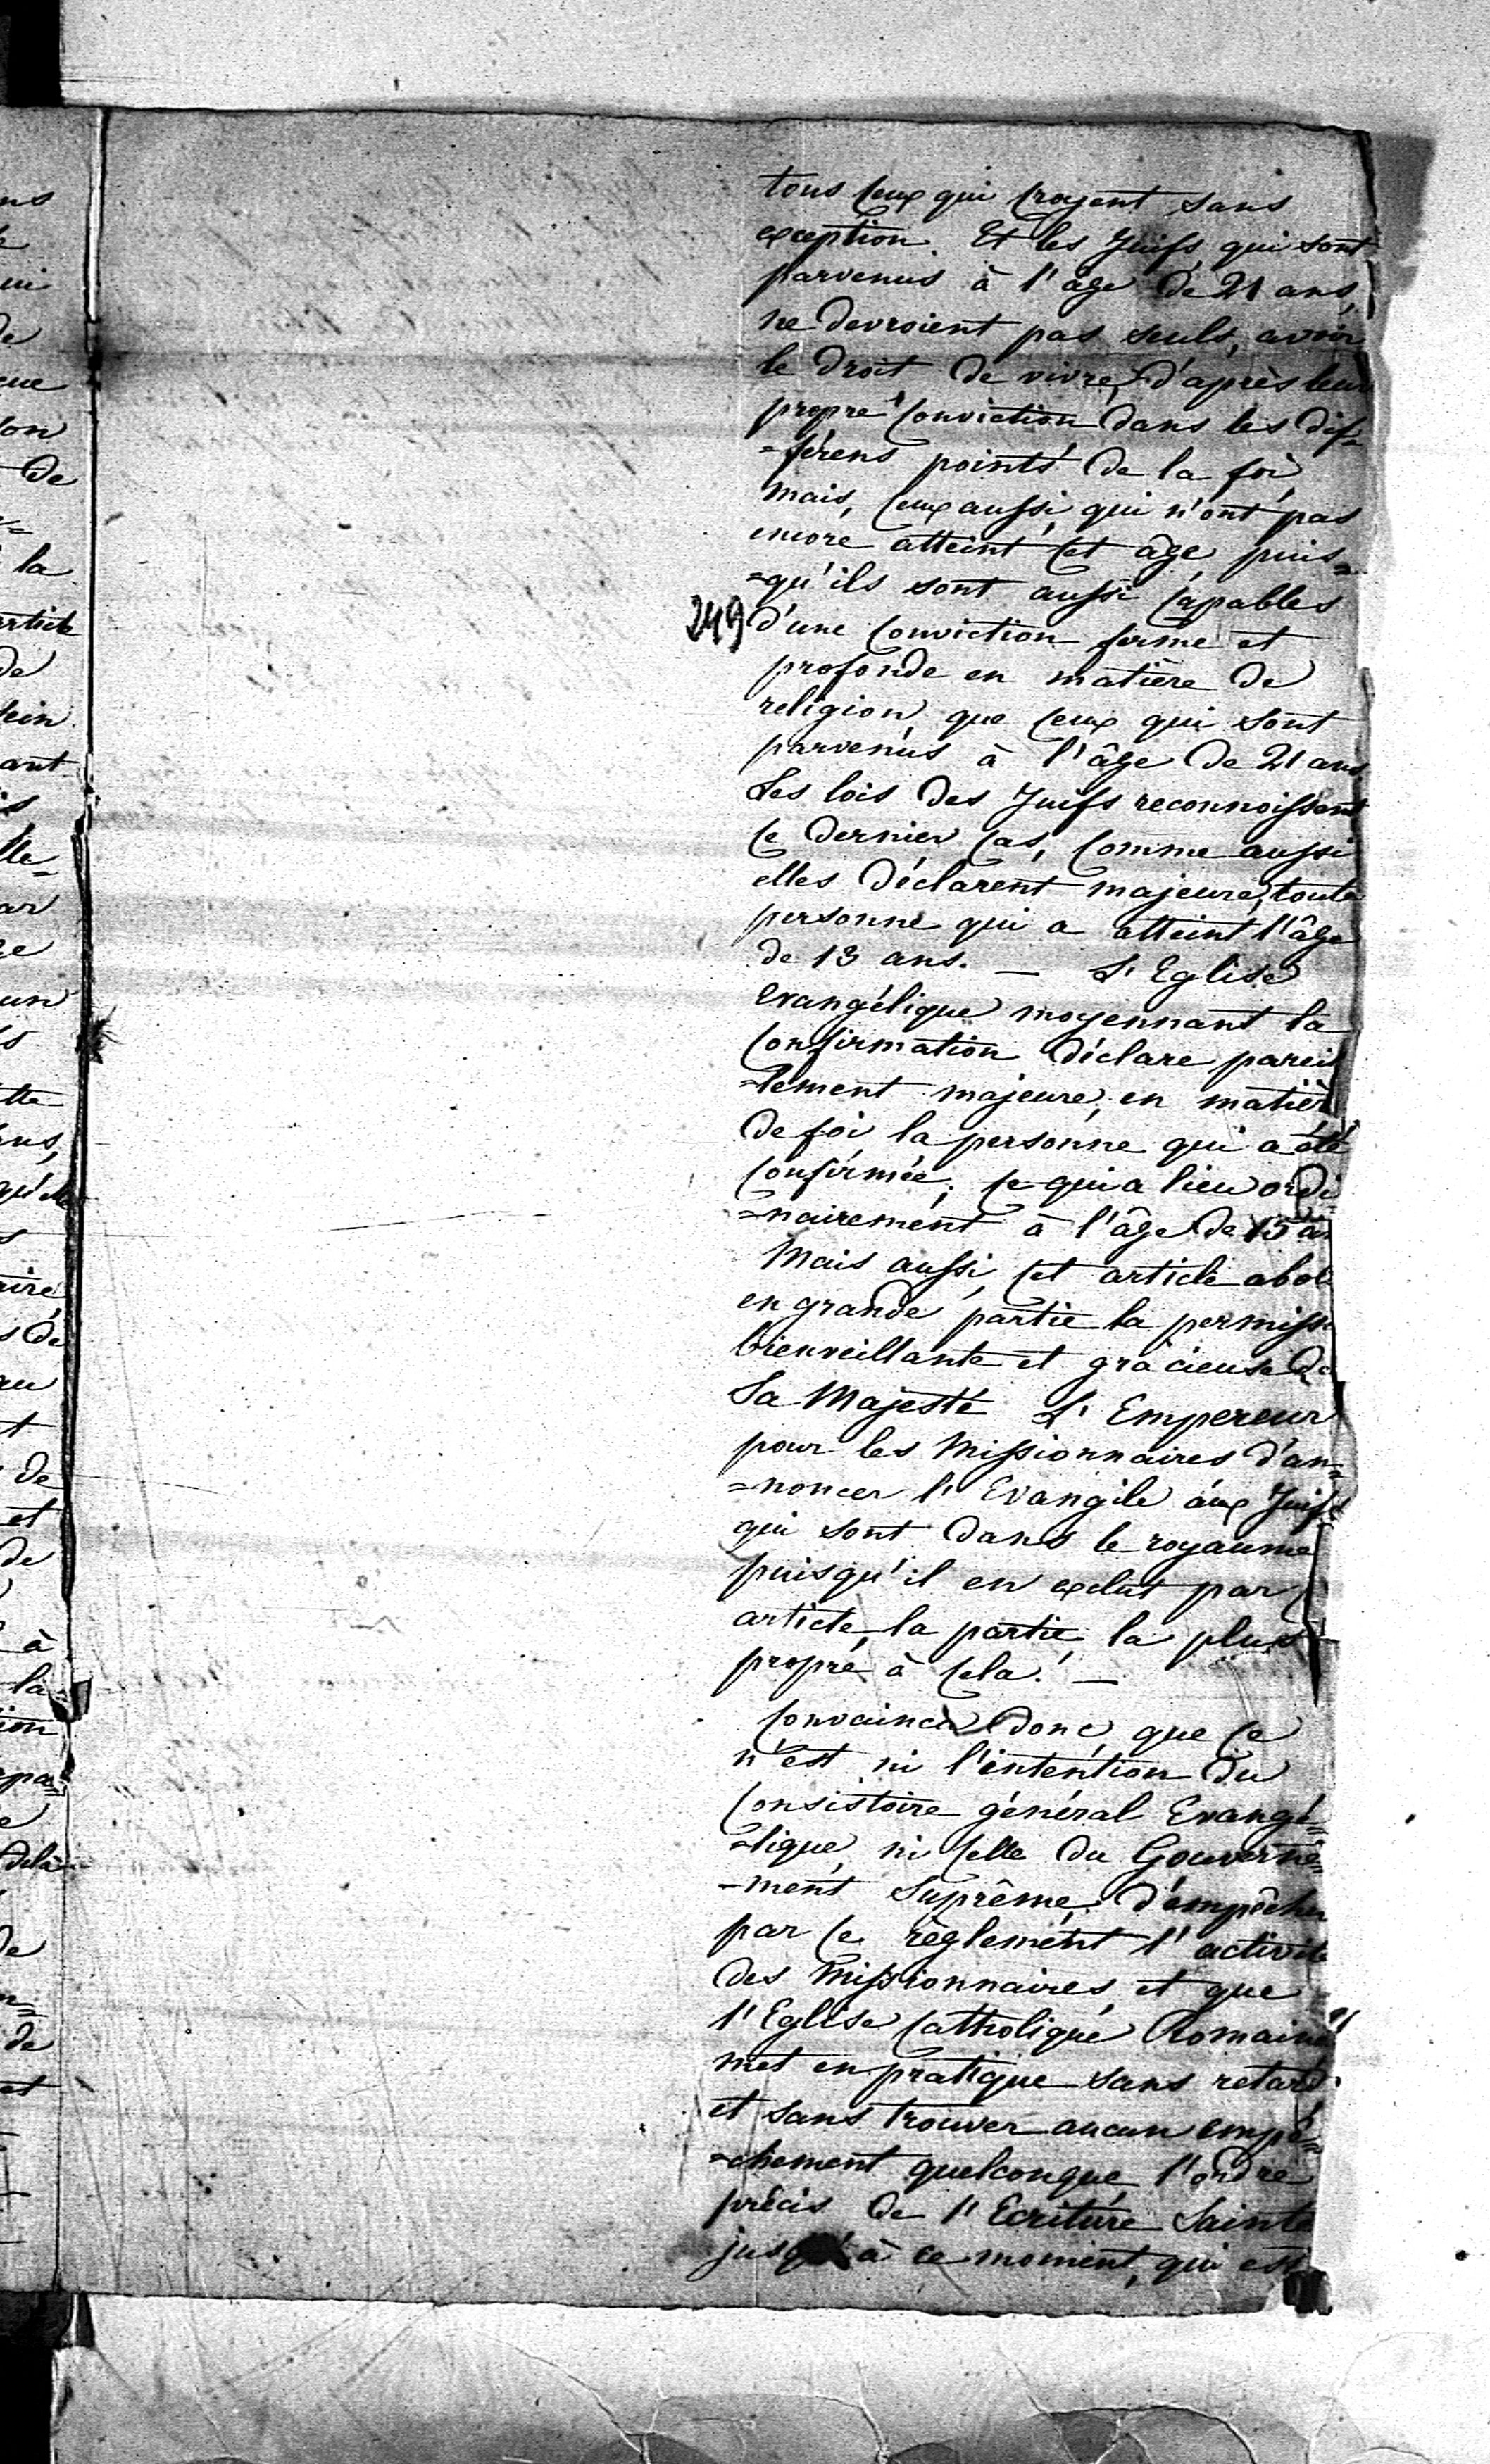 tous ceux qui croyent sans
exception. Et les Juifs, qui sont
parvenus à l'âge de 21 ans,
ne devroient pas seuls, avoir
le droit de vivre, d'après leur
propre conviction dans les dif=
=férens points de la foi,
mais, ceux aussi, qui n'ont pas
encore atteint cet âge, puis=
=qu'ils sont aussi capables
249
d'une conviction ferme et
profonde en matière de
religion, que ceux qui sont
parvenus à l'âge de 21 ans.
Les lois des Juifs reconnoissent
ce dernier cas, comme aussi
elles déclarent majeure, toute
personne qui a atteint l'âge
de 13 ans. — L'Eglise
Evangélique moyennant la
confirmation déclare pareil
=lement majeure, en matièr
de foi la personne qui a été
confirmée; ce qui a lieu ordi
=nairement à l'âge de 15 an
Mais aussi, cet article aboli
en grande partie la permissi
bienveillante et gracieuse de
Sa Majesté L'Empereur
pour les Missionnaires d'an=
=noncer l'Evangile aux Juifs
qui sont dans le royaume
puisqu'il en exclut par c
article, la partie, la plus
propre à cela! —
Convaincu donc, que ce
n'est ni l'intention du
Consistoire général Evangé=
=lique, ni celle du Gouverne=
=ment Suprême, d'empêcher
par ce règlement l'activité
des Missionnaires, et que
l'Eglise Catholique Romaine
met en pratique sans retard
et sans trouver aucun empê=
=chement quelconque, l'ordre
précis de l'Ecriture Sainte
jusqu'à ce moment, qui est